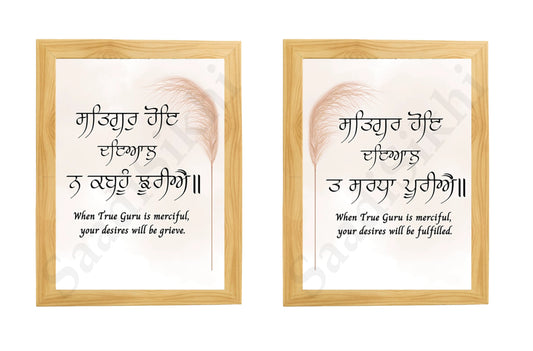 ਸਤਿਗੁਰੁ ਹੋਇ
ਦਇਆਲੁ
ਨ ਕਬਹੂੰ ਝੂਰੀਐ॥
When True Guru is merciful,
your desires will be grieve.
ਸਤਿਗੁਰ ਹੋਇ
ਦਇਆਲੁ
ਤ ਸਰਧਾ ਪੂਰੀਐ॥
When True Guru is merciful,
your desires will be fulfilled.